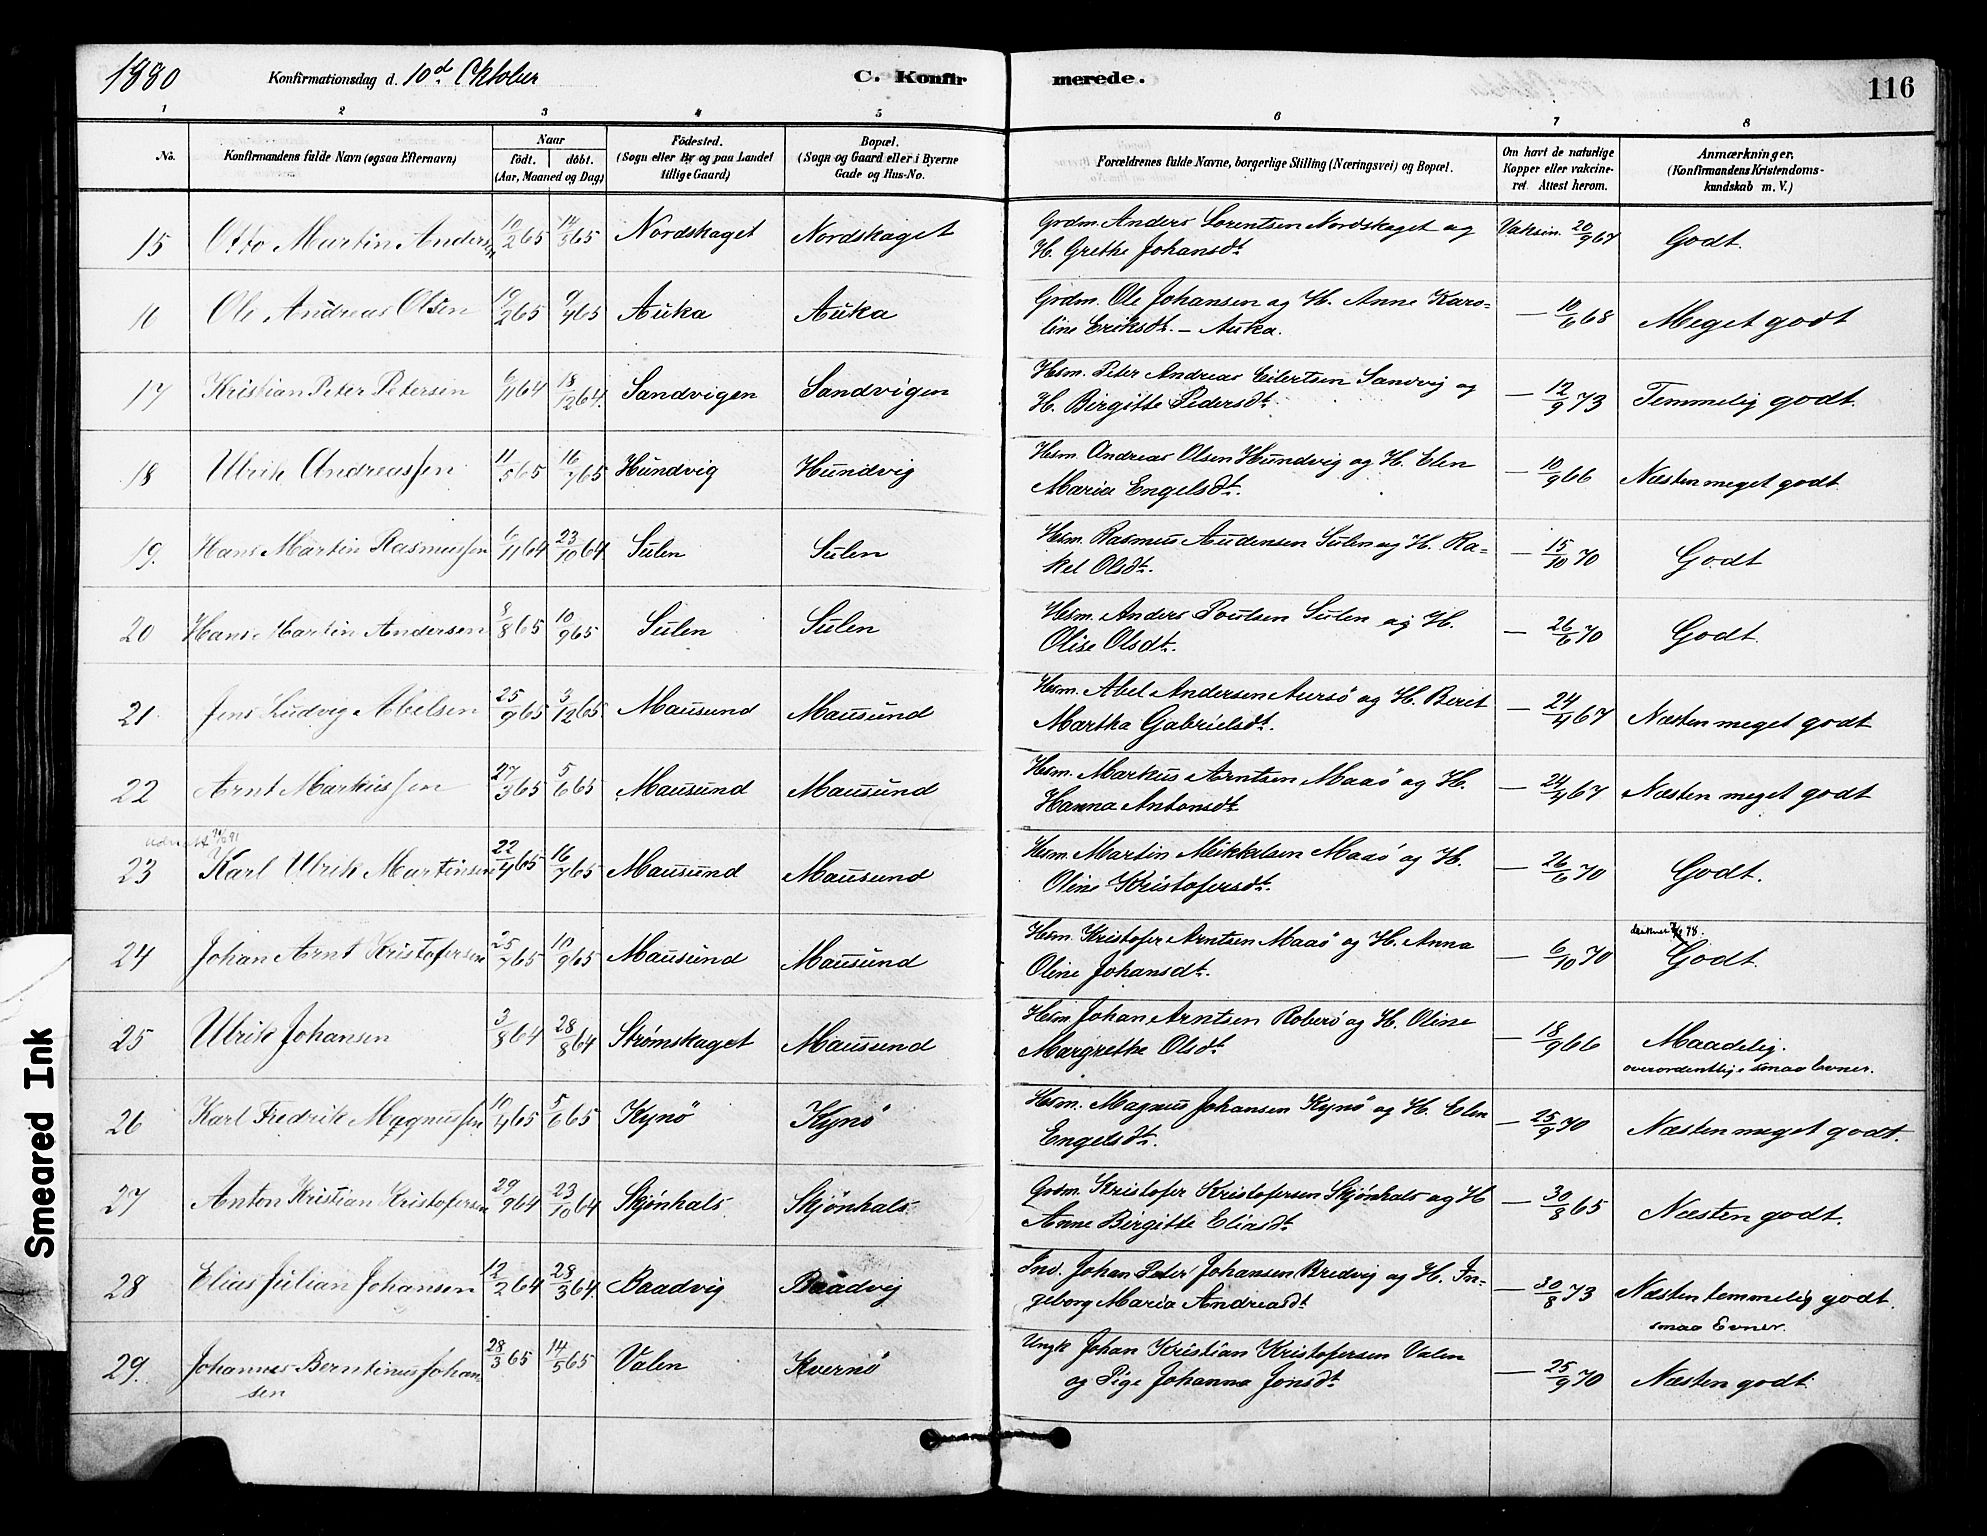 1880 Konfirmationsdag d. 10d Oktober C. Konfirmerede. 116
1 2 3 4 5 6 7 8
No. Konfirmandens fulde Navn (ogsaa Efternavn) Naar födt. döbt. (Aar, Maaned og Dag) Födested. (Sogn eller By og paa Landet tillige Gaard) Bopæl. (Sogn og Gaard eller i Byerne Gade og Hus-No. Forældrenes fulde Navne, borgerlige Stilling (Næringsvei) og Bopæl. Om havt de naturlige Kopper eller vakcineret. Attest herom. Anmærkninger. (Konfirmandens Kristendomskundskab m. V.)
15 Otto Martin Andersen 10/2 65 14/3 65 Nordskaget Nordskaget Grdm. Anders Lorentsen Nordskaget og Vaksin. 20/9 67 Godt.
H. Grethe Johansdt.
16 Ole Andreas Olsen 19/2 65 9/4 65 Auka Auka Grdm. Ole Johansen og H. Anne Karo= — 10/6 68 Meget godt
line Eriksdt. — Auka.
17 Kristian Peter Petersen 6/11 64 18/12 64. Sandvigen Sandvigen Hsm. Peter Andreas Eilertsen Sandvig og — 12/9 73 Temmelig godt.
H. Birgitte Pedersdt.
18 Ulrik Andreassen 11/5 65 16/7 65 Hundvig Hundvig Hsm. Andreas Olsen Hundvig og H. Elen — 10/9 66 Næsten meget godt
Maria Engelsdt.
19. Hans Martin Rasmussen 6/11 64 23/10 64 Sulen Sulen Hsm. Rasmus Audensen Sulen og H. Ra= — 15/10 70 Godt
kel Olsdt.
20 Hans Martin Andersen 8/8 65 10/9 65 Sulen Sulen Hsm. Anders Poulsen Sulen og H. — 26/6 70 Godt.
Olise Olsdt.
21 Jens Ludvig Abelsen 25/9 65 3/12 65 Mausund Mausund Hsm. Abel Andersen Aursö og H. Berit — 24/4 67 Næsten meget godt
Martha Gabrielsdt.
22 Arnt Markussen 27/3 65 5/6 65 Mausund Mausund Hsm. Markus Arntsen Maasö og H. — 24/4 67 Næsten meget godt
Hanna Antonsdt.
23 Karl Ulrik Martinsen 22/4 65 16/7 65 Mausund Mausund Hsm. Martin Mikkelsen Maasö og H. — 26/6 70 Godt.
Oline Kristofersdt.
24 Johan Arnt Kristofersen 25/7 65 10/9 65 Mausund Mausund Hsm. Kristofer Arntsen Maasö og H. Anna — 6/10 70 Godt.
Oline Johansdt.
25 Ulrik Johansen 3/8 64 28/8 64 Strømskaget Mausund Hsm Johan Arntsen Roberö og H. Oline — 18/9 66 Maadelig.
Margrethe Olsdt overordentlige smaa Evner.
26 Karl Fredrik Magnussen 10/4 65 5/6 65 Kynö Kynö Hsm. Magnus Johansen Kynö og H. Elen — 25/9 70 Næsten meget godt.
Engelsdt.
27 Anton Kristian Kristofersen 29/9 64 23/10 64 Skjönhals Skjönhals Grdm. Kristofer Kristofersen Skjönhals og H — 30/8 65 Næsten godt.
Anne Birgitte Eliasdt.
28 Elias Julian Johansen 12/2 64 28/3 64. Baadvig Baadvig Ind. Johan Peter Johansen Bredvig og H. In= — 30/8 73 Næsten temmelig godt.
geborg Maria Andreasdt smaa Evner.
29. Johannes Berntinus Johan= 28/3 65 14/5 65 Valen Kvernö Ungk Johan Kristian Kristofersen Valen — 25/9 70 Næsten godt
sen og Pige Johanna Jonsdt.
Smeared Ink